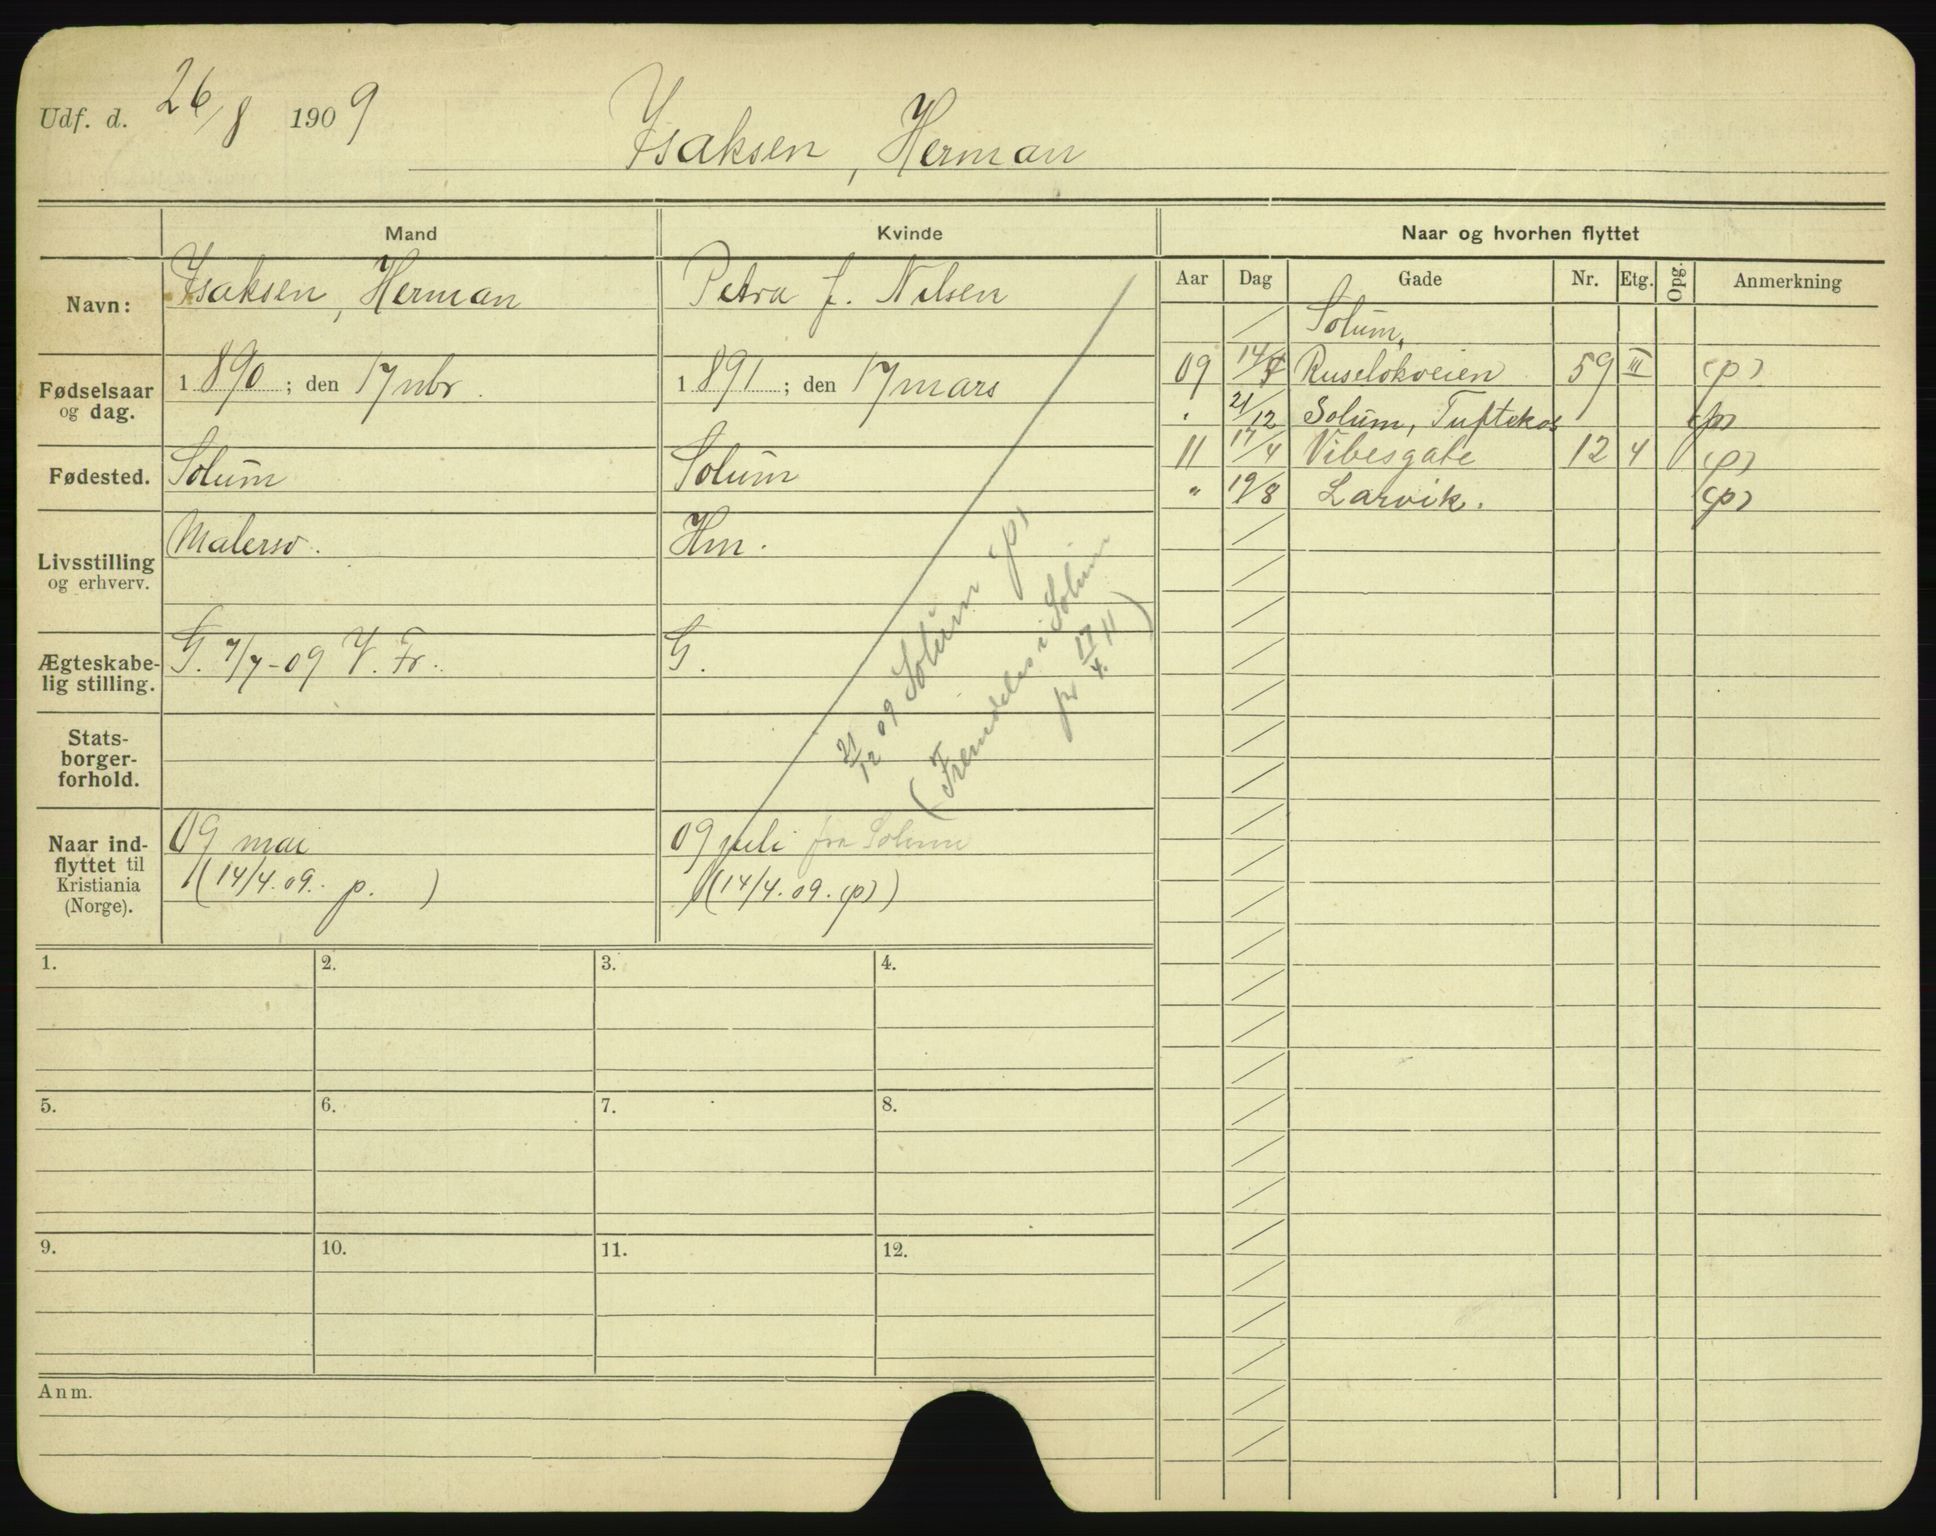 Udf. d. 26/8 1909
Isaksen, Herman
Mand
Kvinde
Naar og hvorhen flyttet
Navn:
Isaksen, Herman
Petra f. Nilsen
Fødselsaar og dag.
1890; den 17 nbr.
1891; den 17 mars
Fødested.
Solum
Solum
Livsstilling og erhverv.
Malersv.
Hm.
Ægteskabe-
lig stilling.
G. 7/7-09 V. Fr.
G.
Stats-
borger-
forhold.
Naar ind-
flyttet til
Kristiania
(Norge).
09 mai
(14/7.09. p. )
09 juli fra Solum
(14/7.09. (p))
21/12 09 Solum (p)
(Fremdeles i Solum
pr 17/4. 11)
Aar Dag Gade Nr. Etg. Opg. Anmerkning
Solum,
09 14/7 Ruseløkveien 59 III (p)
" 21/12 Solum, Tuftekas (p)
11 17/4 Vibesgate 12 4 (p)
" 19/8 Larvik. (p)
1. 2. 3. 4.
5. 6. 7. 8.
9. 10. 11. 12.
Anm.